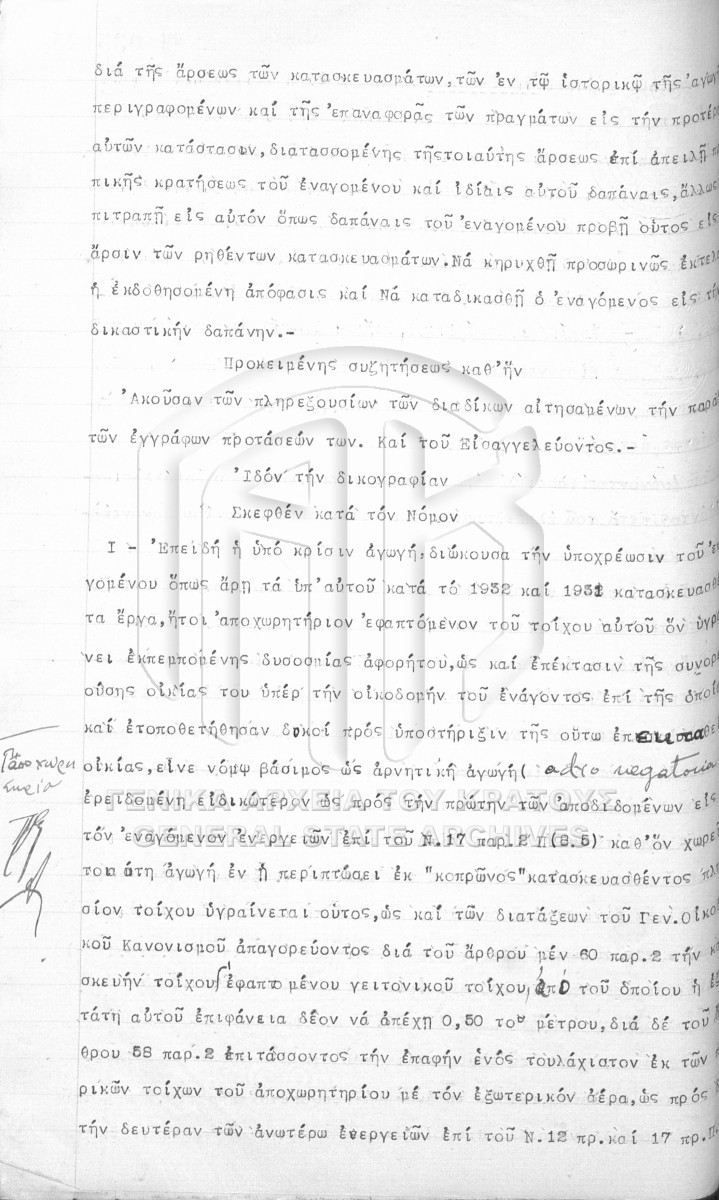 διά τῆς ἄρσεως τῶν κατασκευασμάτων, τῶν ἐν τῷ ἱστορικῷ τῆς ἀγωγῆ
περιγραφομένων καί τῆς ἐπαναφορᾶς τῶν πραγμάτων εἰς τήν προτέρα
αὐτῶν κατάστασιν, διατασσομένης τῆςτοιαύτης ἄρσεως ἐπί ἀπειλῇ π
πικῆς κρατήσεως τοῦ ἐναγομένου καί ἰδίαις αὐτοῦ δαπάναις, ἄλλως
πιτραπῇ εἰς αὐτόν ὅπως δαπάναις τοῦ ἐναγομένου προβῇ οὗτος εἰς
ἄρσιν τῶν ρηθέντων κατασκευασμάτων. Νά κηρυχθῇ προσωρινῶς ἐκτελε
ἡ ἐκδοθησομένη ἀπόφασις καί Νά καταδικασθῇ ὁ ἐναγόμενος εἰς τήν
δικαστικήν δαπάνην.-
Προκειμένης συζητήσεως καθ'ἥν
Ἀκοῦσαν τῶν πληρεξουσίων τῶν διαδίκων αἰτησαμένων τήν παρα
τῶν ἐγγράφων προτάσεών των. Καί τοῦ Εἰσαγγελεύοντος.-
Ἰδόν τήν δικογραφίαν
Σκεφθέν κατά τόν Νόμον
I - Ἐπειδή ἡ ὑπό κρίσιν ἀγωγή, διώκουσα τήν ὑποχρέωσιν τοῦ ἐν
γομένου ὅπως ἄρῃ τά ὑπ'αὐτοῦ κατά τό 1932 καί 1931 κατασκευασθέ
τα ἔργα, ἤτοι ἀποχωρητήριον ἐφαπτόμενον τοῦ τοίχου αὐτοῦ ὅν ὑγρα
νει ἐκπεμπομένης δυσοσμίας ἀφορήτου, ὡς καί ἐπέκτασιν τῆς συνορε
ούσης οἰκίας του ὑπέρ τήν οἰκοδομήν τοῦ ἐνάγοντος ἐπί τῆς ὁποία
καί ἐτοποθετήθησαν δοκοί πρός ὑποστήριξιν τῆς οὕτω ἐπεκταθεί
οἰκίας, εἶνε νόμῳ βάσιμος ὡς ἀρνητική ἀγωγή( actio negatoria
ἐρειδομένη εἰδικώτερον ὡς πρός τήν πρώτην τῶν ἀποδιδομένων εἰς
τόν ἐναγόμενον ἐνεργειῶν ἐπί τοῦ Ν.17 παρ.2 Π(8.5) καθ'ὅν χωρεῖ
τοιαύτη ἀγωγή ἐν ᾗ περιπτώσει ἐκ "κοπρῶνος" κατασκευασθέντος πλη
σίον τοίχου ὑγραίνεται οὗτος, ὡς καί τῶν διατάξεων τοῦ Γεν. Οἰκο
κοῦ Κανονισμοῦ ἀπαγορεύοντος διά τοῦ ἄρθρου μέν 60 παρ.2 τήν κα
σκευήν τοίχου ἐφαπτομένου γειτονικοῦ τοίχου, ἀπό τοῦ ὁποίου ἡ ἐξ
τάτη αὐτοῦ ἐπιφάνεια δέον νά ἀπέχῃ 0,50 τοῦ μέτρου, διά δέ τοῦ
θρου 58 παρ.2 ἐπιτάσσοντος τήν ἐπαφήν ἑνός τουλάχιστον ἐκ τῶν
ρικῶν τοίχων τοῦ ἀποχωρητηρίου μέ τόν ἐξωτερικόν ἀέρα, ὡς πρός
τήν δευτέραν τῶν ἀνωτέρω ἐνεργειῶν ἐπί τοῦ Ν.12 πρ. καί 17 πρ.Π.
ΓΕΝΙΚΑ ΑΡΧΕΙΑ ΤΟΥ ΚΡΑΤΟΥΣ
GENERAL STATE ARCHIVES